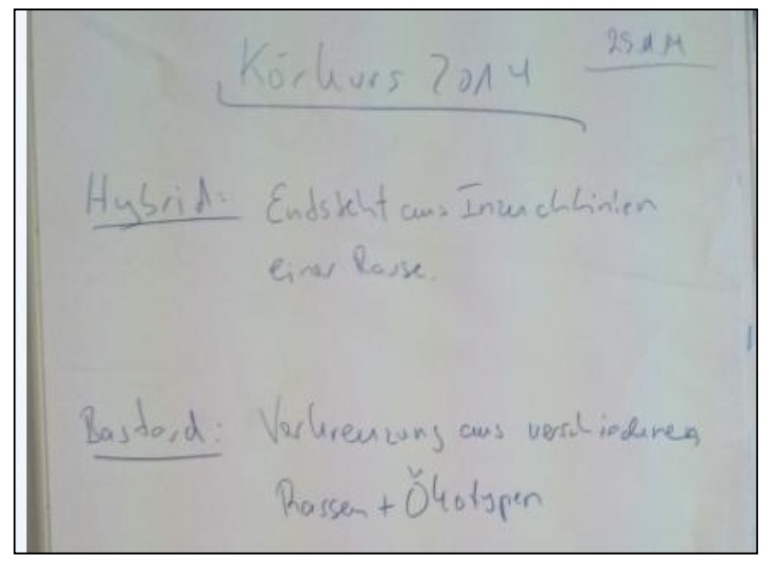 Körkurs 2014
Hybrid: Endsteht aus Inzuchtlinien
einer Rasse.
Bastard: Verkreuzung aus verschiedenen
Rassen + Ökotypen